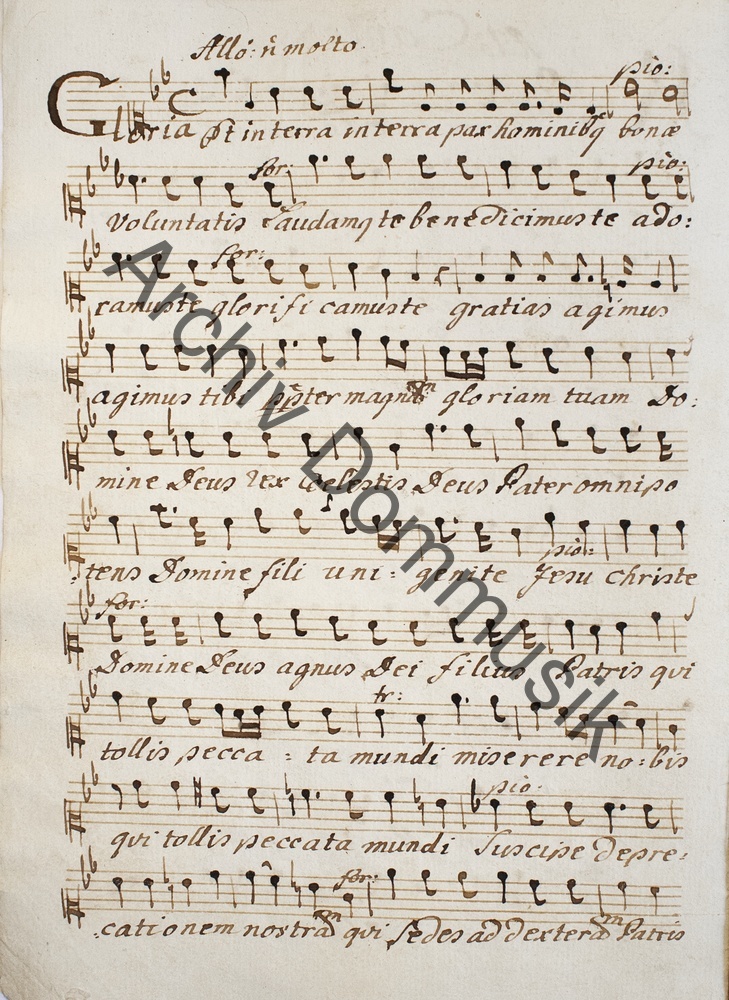 Allo: ñ molto
pio:
Gloria Et in terra in terra pax hominibq bonæ
for: pio:
voluntatis Laudamq te benedicimus te ado:
for:
ramus te glorificamus te gratias agimus
agimus tibi ppter magnam gloriam tuam Do:
mine Deus Rex Cœlestis Deus Pater omnipo
pio:
tens Domine fili uni: genite Jesu Christe
for:
Domine Deus agnus Dei filius Patris qui
tr:
tollis pecca: ta mundi miserere no: bis
pio:
qui tollis peccata mundi Suscipe depre:
for:
cationem nostram qui sedes ad dexteram Patris
Archiv Dommusik